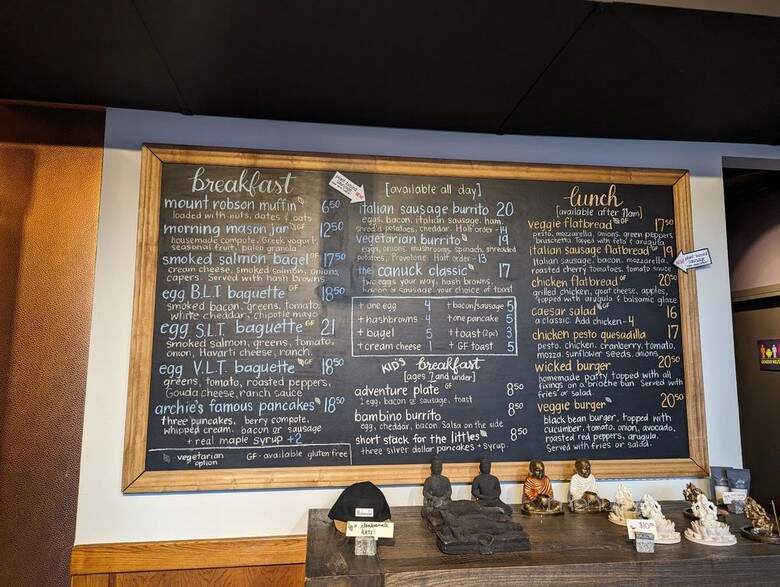 breakfast
mount robson muffin 6⁵⁰
loaded with nuts, dates & oats
morning mason jar GF 12⁵⁰
housemade compote, Greek yogurt,
seasonal fruit, paleo granola
smoked salmon bagel GF 17⁵⁰
cream cheese, smoked salmon, onions,
capers. Served with hash browns
egg B.L.T baguette GF 18⁵⁰
smoked bacon, greens, tomato,
white cheddar, chipotle mayo
egg S.L.T baguette GF 21
smoked salmon, greens, tomato,
onion, Havarti cheese, ranch.
egg V.L.T baguette GF 18⁵⁰
greens, tomato, roasted peppers,
Gouda cheese, ranch sauce
archie's famous pancakes 18⁵⁰
three pancakes, berry compote,
whipped cream. bacon or sausage
+ real maple syrup +2
vegetarian option
GF - available gluten free
[available all day]
italian sausage burrito 20
eggs, bacon, italian sausage, ham,
shred'd potatoes, cheddar. Half order - 14
vegetarian burrito 19
eggs, onions, mushrooms, spinach, shredded
potatoes, Provolone. Half order - 13
the canuck classic 17
two eggs your way, hash browns,
bacon or sausage & your choice of toast
+ one egg 4
+ hashbrowns 4
+ bagel 5
+ cream cheese 1
+ bacon/sausage 5
+ one pancake 5
+ toast (2pc) 3
+ GF toast 5
KID'S breakfast
[ages 7 and under]
adventure plate GF 8⁵⁰
1 egg, bacon or sausage, toast
bambino burrito 8⁵⁰
egg, cheddar, bacon. Salsa on the side
short stack for the littles 8⁵⁰
three silver dollar pancakes + syrup.
lunch
[available after 11am]
veggie flatbread GF 17⁵⁰
pesto, mozzarella, onions, green peppers,
bruschetta. Topped with feta & arugula
italian sausage flatbread GF 19
italian sausage, bacon, mozzarella,
roasted cherry tomatoes, tomato sauce
chicken flatbread GF 20⁵⁰
grilled chicken, goat cheese, apples,
topped with arugula & balsamic glaze
caesar salad GF 16
a classic. Add chicken - 4
chicken pesto quesadilla 17
pesto, chicken, cranberry, tomato,
mozza, sunflower seeds, onions
wicked burger 20⁵⁰
homemade patty topped with all
fixings on a brioche bun. Served with
fries or salad.
veggie burger 20⁵⁰
black bean burger, topped with
cucumber, tomato, onion, avocado,
roasted red peppers, arugula.
Served with fries or salad.